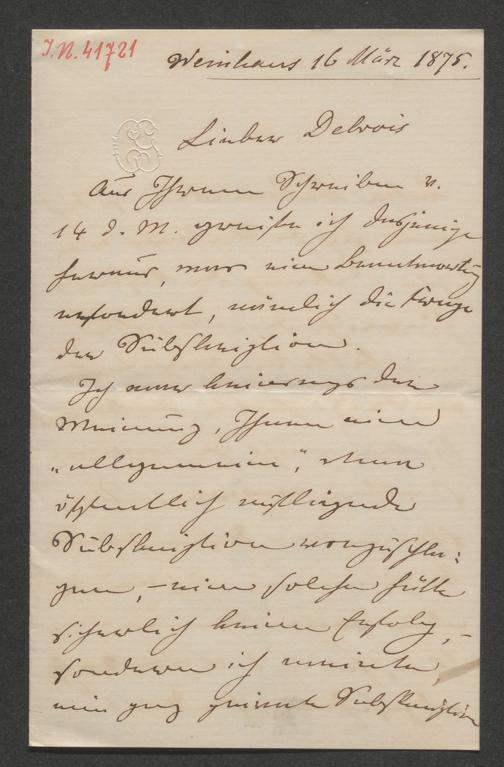 I.N. 41721
Weinhaus 16 März 1875.
Lieber Debrois
Aus Ihrem Schreiben v.
14 d. M. greife ich dasjenige
heraus, was eine Beantwortung
erfordert, nämlich die Frage
der Subskription.
Ich war keineswegs der
Meinung, Ihnen eine
„allgemeine", etwa
öffentlich aufliegende
Subskription vorzuschla-
gen, – eine solche hätte
sicherlich keinen Erfolg, –
sondern ich meinte,
eine ganz private Subskription